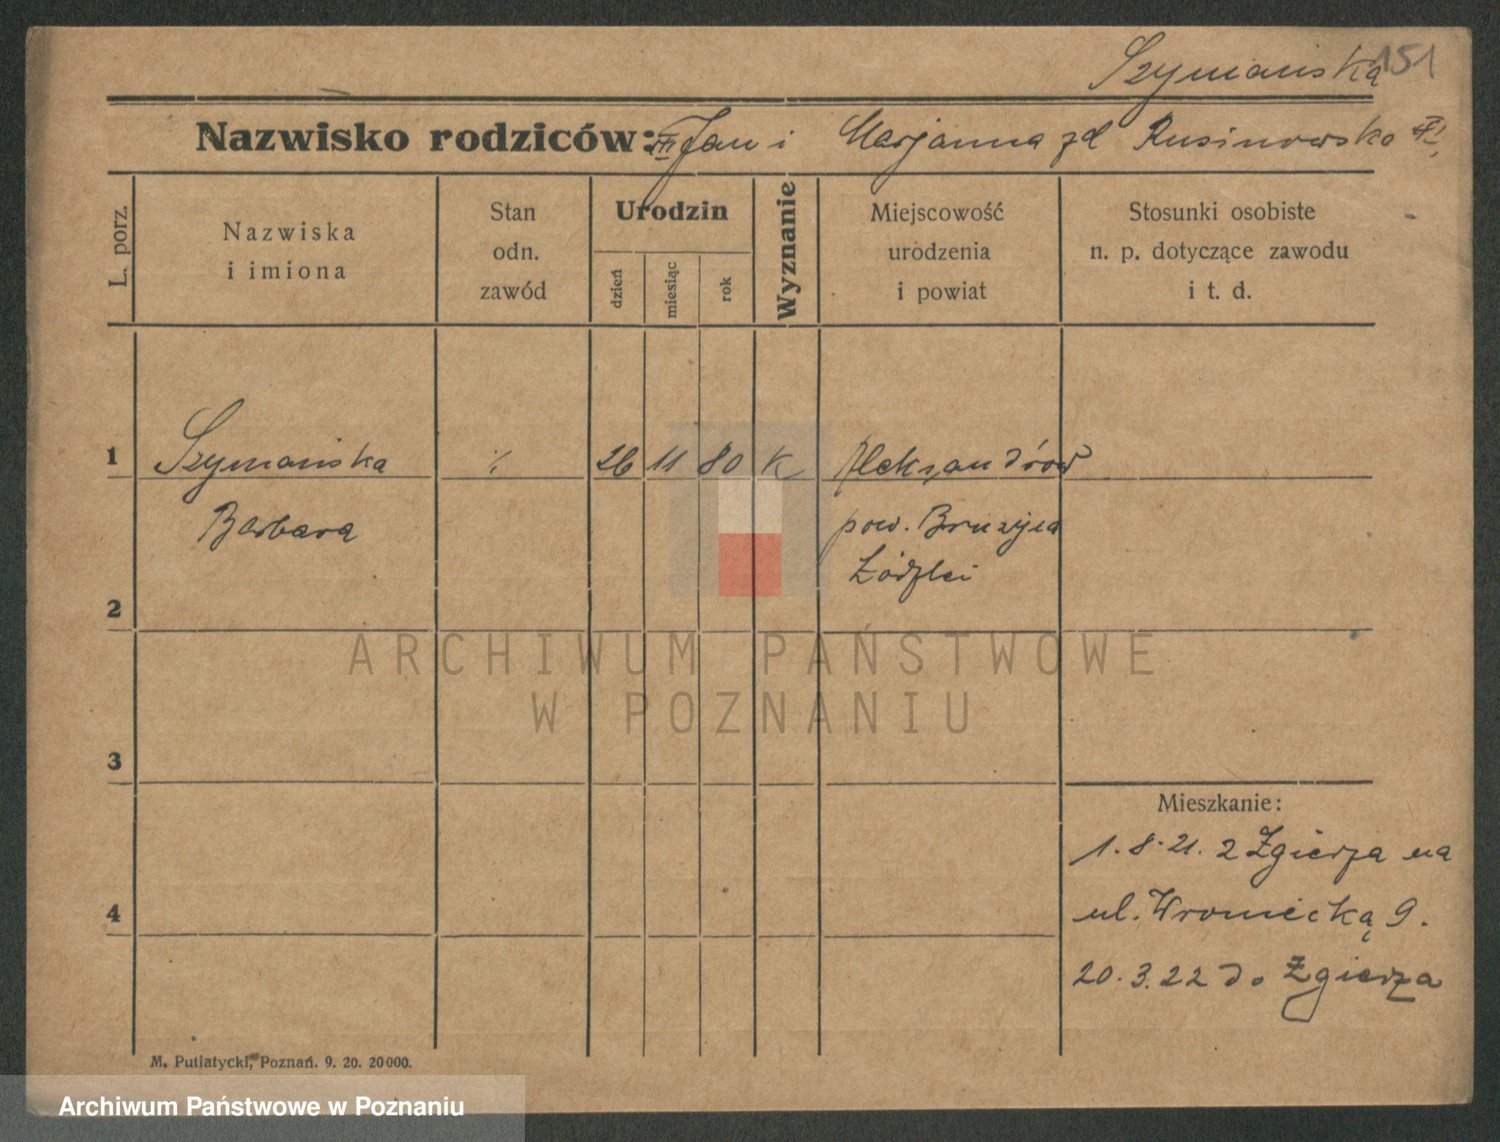 Szymańska 151
Nazwisko rodziców: Jan i Marjanna zd Rusinowska
L. porz.
Nazwiska
i imiona
Stan
odn.
zawód
Urodzin
dzień
miesiąc
rok
Wyznanie
Miejscowość
urodzenia
i powiat
Stosunki osobiste
n. p. dotyczące zawodu
i t. d.
1 Szymańska % 26 11 80 K Aleksandrów
Barbara pow.
2
3
4
Mieszkanie:
1.8.21. z Zgierza na
ul. Wroniecką 9.
20.3.22 do Zgierza
M. Putiatycki, Poznań. 9. 20. 20000.
ARCHIWUM PAŃSTWOWE
W POZNANIU
Archiwum Państwowe w Poznaniu